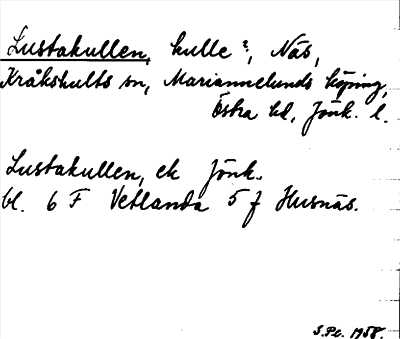 Lustakullen, kulle?, Näs,
Kråkshults sn, Mariannelunds köping,
Östra hd, Jönk. l.
Lustakullen, ek Jönk.
bl. 6 F Vetlanda 5 f Husnäs.
1958.